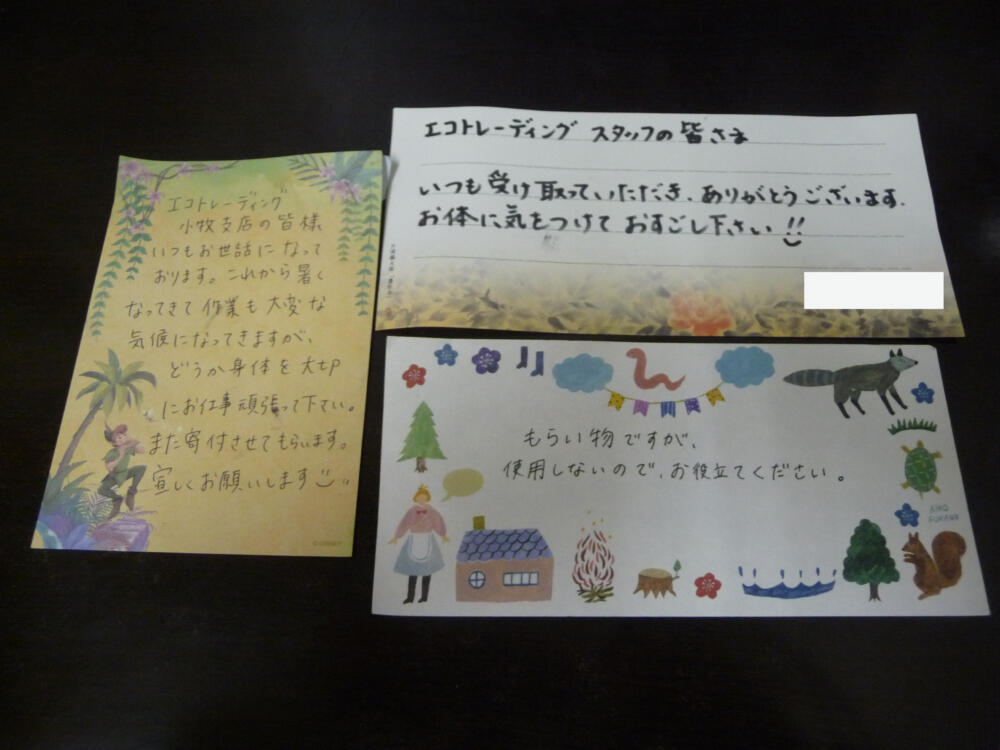 エコトレーディング
小牧支店の皆様
いつもお世話になって
おります。これから暑く
なってきて作業も大変な
気候になってきますが、
どうか身体を大切
にお仕事頑張って下さい。
また寄付させてもらいます。
宜しくお願いします
エコトレーディング スタッフの皆さま
いつも受け取っていただき、ありがとうございます.
お体に気をつけて おすごし下さい!!
もらい物ですが、
使用しないので、お役立てください。
AIKO
FUKAWA